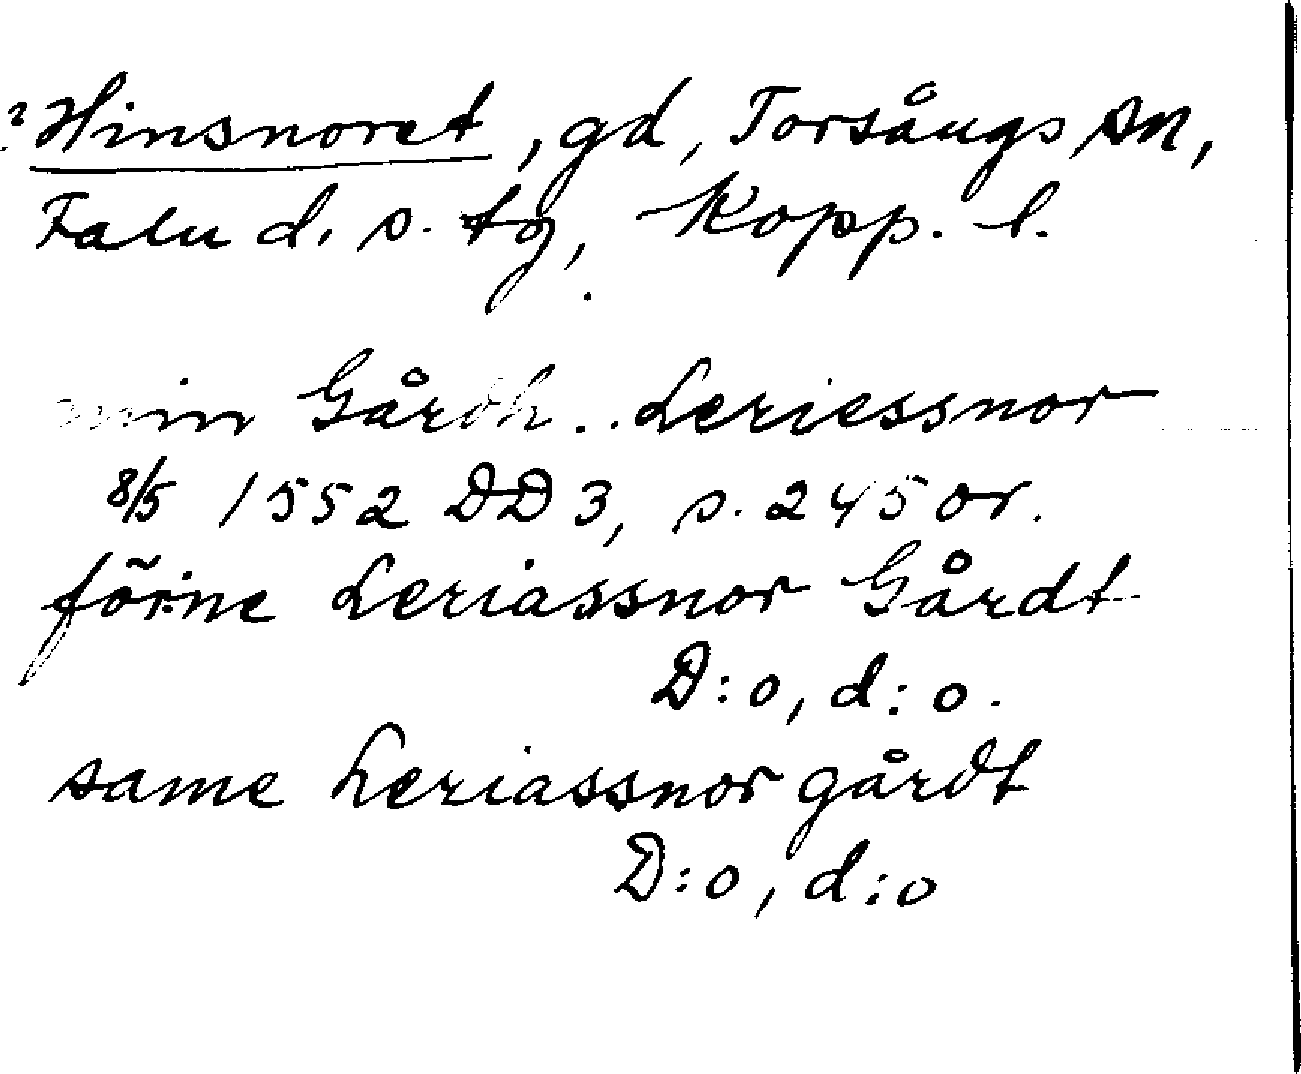 ? Hinsnoret, gd, Torsångs sn,
Falu d. s. tg, Kopp. l.
min Gårdh .. Leriessnor
8/5 1552 DD 3, s. 245 or.
förne Leriassnor Gårdt
D:o, d:o.
same Leriassnor gårdt
D:o, d:o